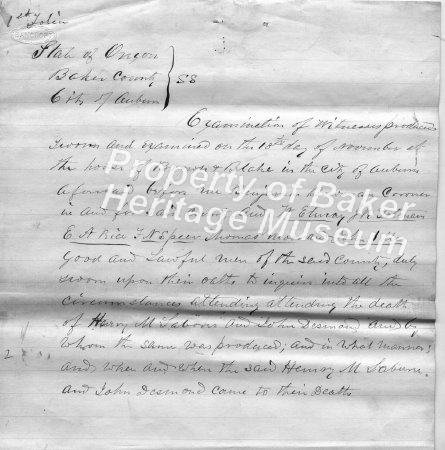 1st Folio
State of Oregon
Baker County } SS
City of Auburn
Examination of Witnesses produced
sworn and examined on the 13th day of November at
the house of Brown & Blake in the city of Auburn
aforesaid before me Coroner
in and for said
E N Rice J N Speer Thomas
Good and Lawful men of the said County, duly
sworn upon their oaths to inquire into all the
circumstances attending attending the death
of Henry M Labörs and John Desmond and by
whom the same was produced; and in what manner;
and when and when the said Henry M Labure
2 and John Desmond came to their Deaths
Property of Baker
Heritage Museum